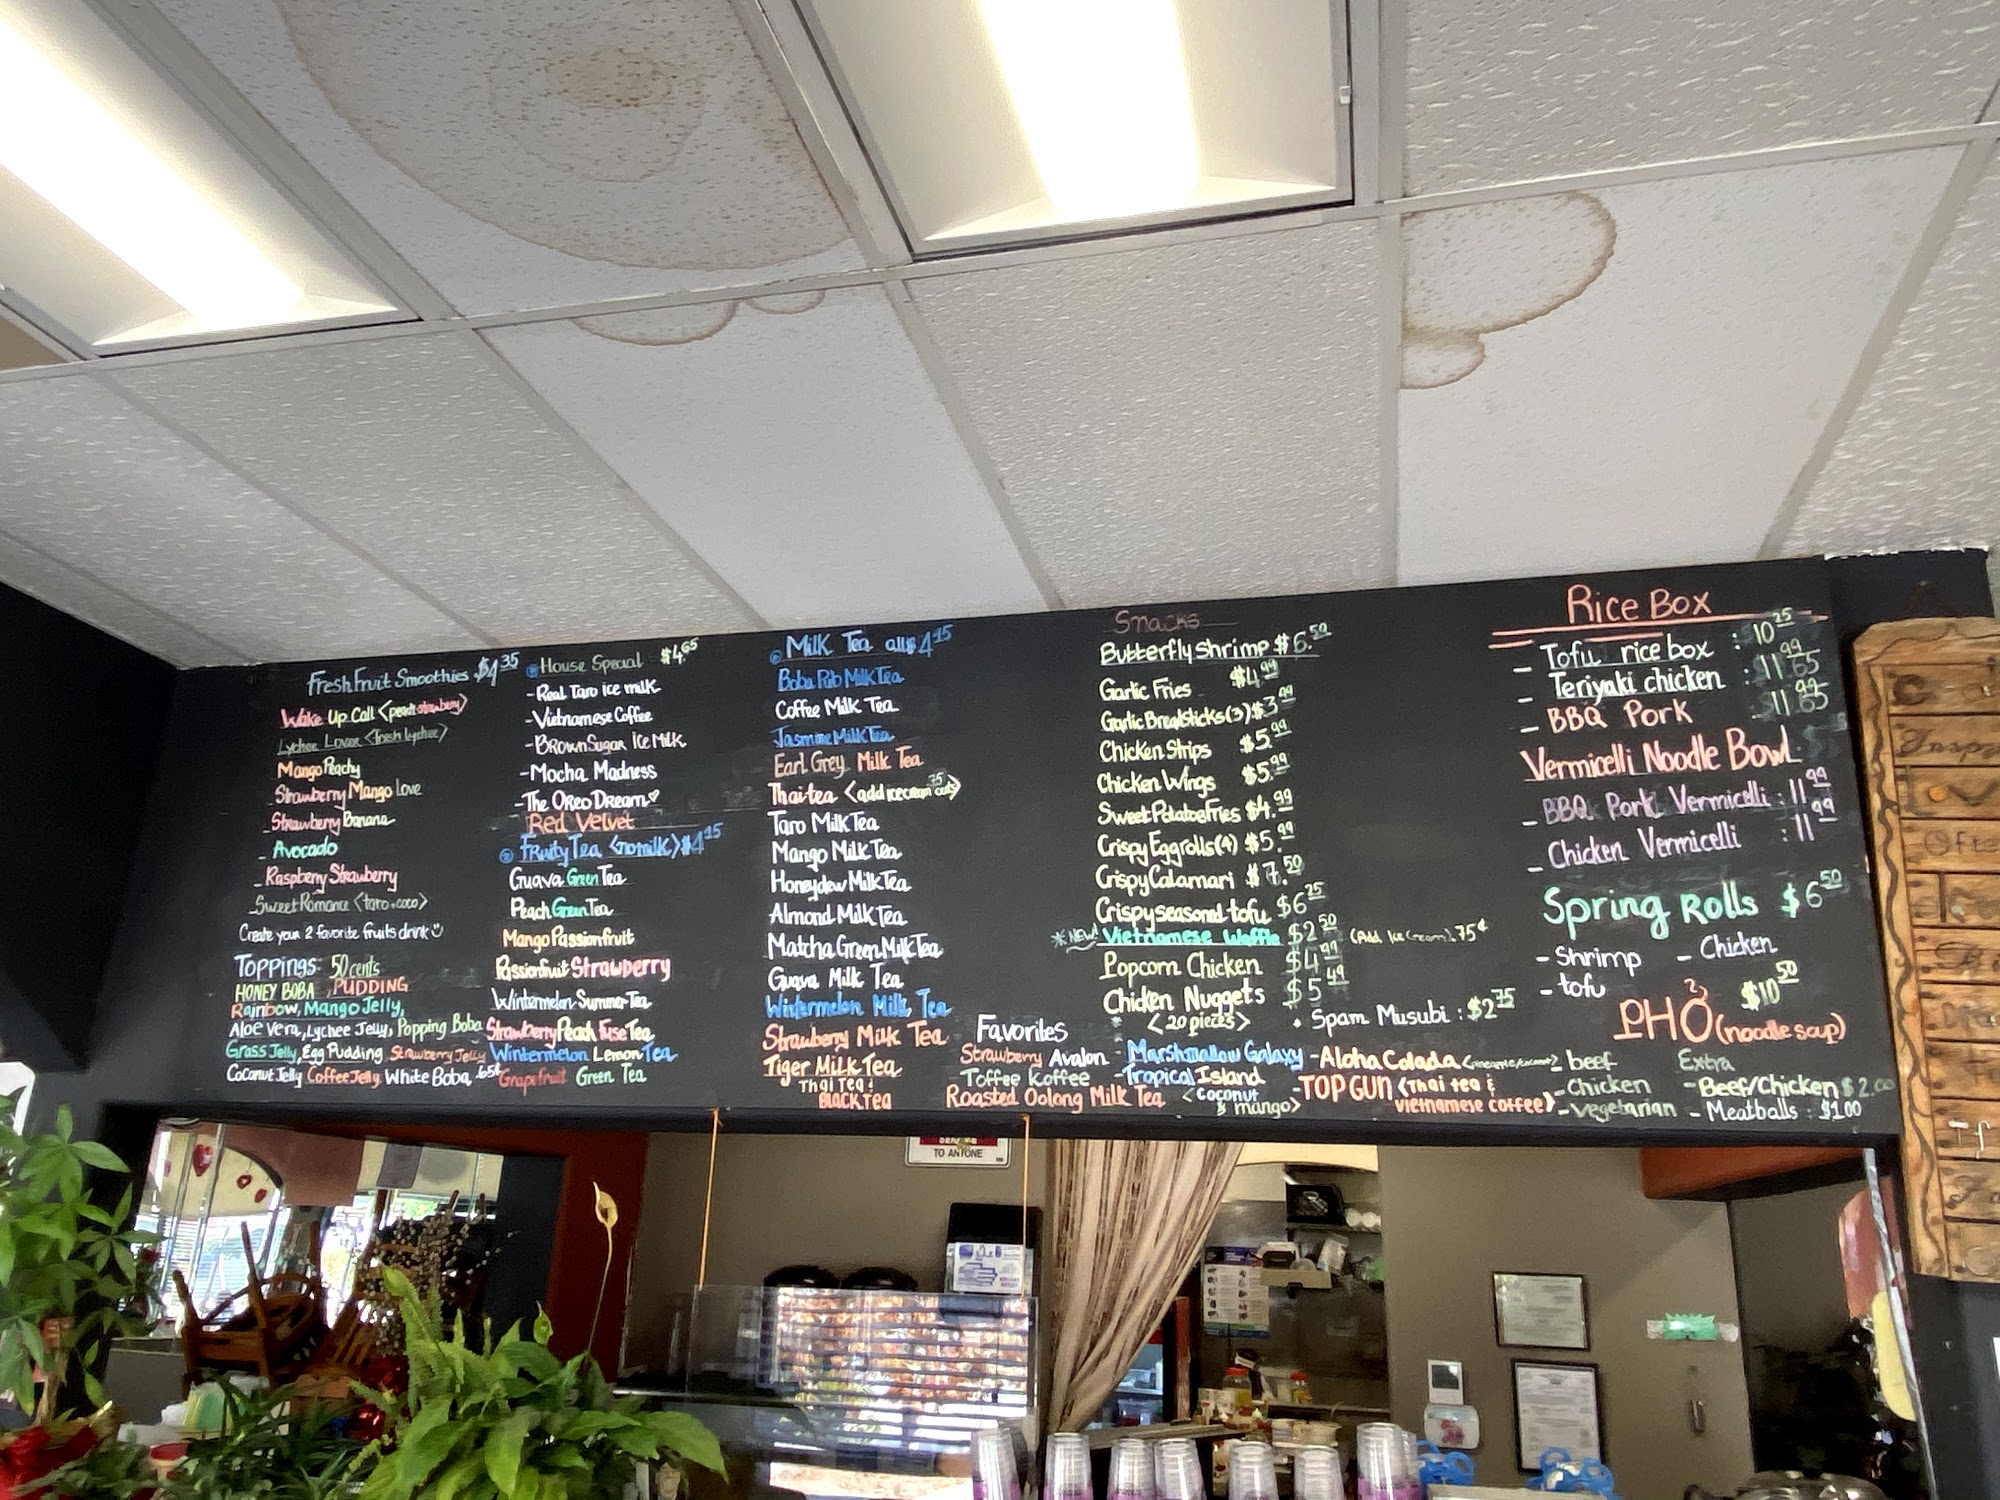 Fresh Fruit Smoothies $4.35
Wake Up Call <peach strawberry>
Lychee Lover <fresh lychee>
Mango Peachy
Strawberry Mango Love
Strawberry Banana
- Avocado
- Raspberry Strawberry
- Sweet Romance <taro+coco>
Create your 2 favorite fruits drink
Toppings: 50 cents
HONEY BOBA PUDDING
Rainbow, Mango Jelly,
Aloe Vera, Lychee Jelly, Popping Boba
Grass Jelly, Egg Pudding Strawberry Jelly
Coconut Jelly Coffee Jelly White Boba .65¢
House Special $4.65
- Real Taro ice milk
- Vietnamese Coffee
- Brown Sugar Ice Milk
- Mocha Madness
- The Oreo Dream
Red Velvet
Fruity Tea <no milk> $4.15
Guava Green Tea
Peach Green Tea
Mango Passionfruit
Passionfruit Strawberry
Wintermelon Summer Tea
Strawberry Peach Fuse Tea
Wintermelon Lemon Tea
Grapefruit Green Tea
Milk Tea all $4.15
Boba Pub Milk Tea
Coffee Milk Tea
Jasmine Milk Tea
Earl Grey Milk Tea
Thai tea <add ice cream 75 cents>
Taro Milk Tea
Mango Milk Tea
Honeydew Milk Tea
Almond Milk Tea
Matcha Green Milk Tea
Guava Milk Tea
Wintermelon Milk Tea
Strawberry Milk Tea
Tiger Milk Tea
Thai Tea &
BLACK Tea
Snacks
Butterfly shrimp $6.50
Garlic Fries $4.99
Garlic Breadsticks (3) $3.99
Chicken Strips $5.99
Chicken Wings $5.99
Sweet Potatoe Fries $4.99
Crispy Eggrolls (4) $5.99
Crispy Calamari $7.50
Crispy seasoned tofu $6.25
*NEW! Vietnamese Waffle $2.50 (Add Ice Cream) .75¢
Popcorn Chicken $4.99
Chicken Nuggets $5.49
<20 pieces>
• Spam Musubi : $2.75
Favorites
Strawberry Avalon
Toffee Koffee
Roasted Oolong Milk Tea
- Marshmallow Galaxy
- Tropical Island
<Coconut
& mango>
- Aloha Colada
- TOP GUN <Thai tea &
Vietnamese coffee>
Rice Box
- Tofu rice box : 10.25
- Teriyaki chicken :
- BBQ Pork :
Vermicelli Noodle Bowl
- BBQ Pork Vermicelli : 11.99
- Chicken Vermicelli : 11.99
Spring Rolls $6.50
- Shrimp - Chicken
- tofu
PHỞ (noodle soup) $10.50
- beef
- Chicken
- vegetarian
Extra
- Beef/Chicken $2.00
- Meatballs : $1.00
TO ANYONE